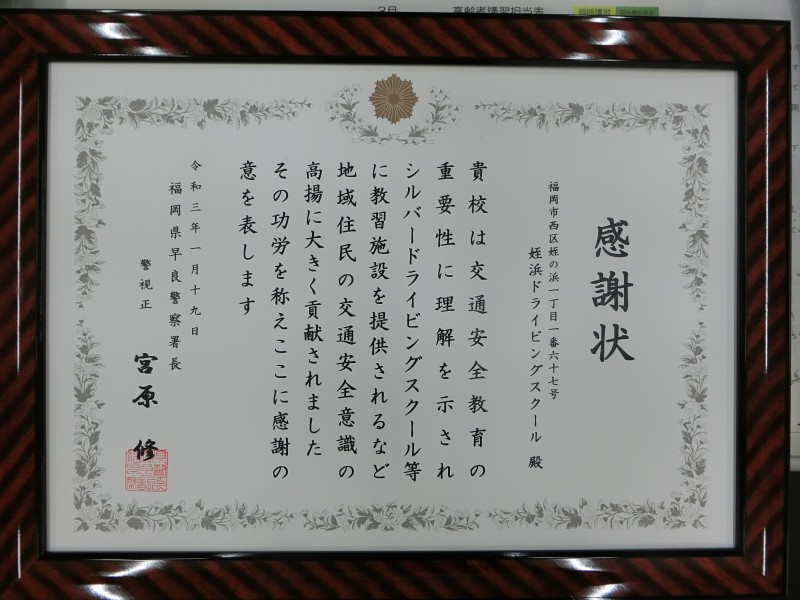 3月 高齢者講習担当表
感謝状
福岡市西区姪の浜一丁目一番六十七号
姪浜ドライビングスクール 殿
貴校は交通安全教育の
重要性に理解を示され
シルバードライビングスクール等
に教習施設を提供されるなど
地域住民の交通安全意識の
高揚に大きく貢献されました
その功労を称えここに感謝の
意を表します
令和三年一月十九日
福岡県早良警察署長
警視正 宮原 修